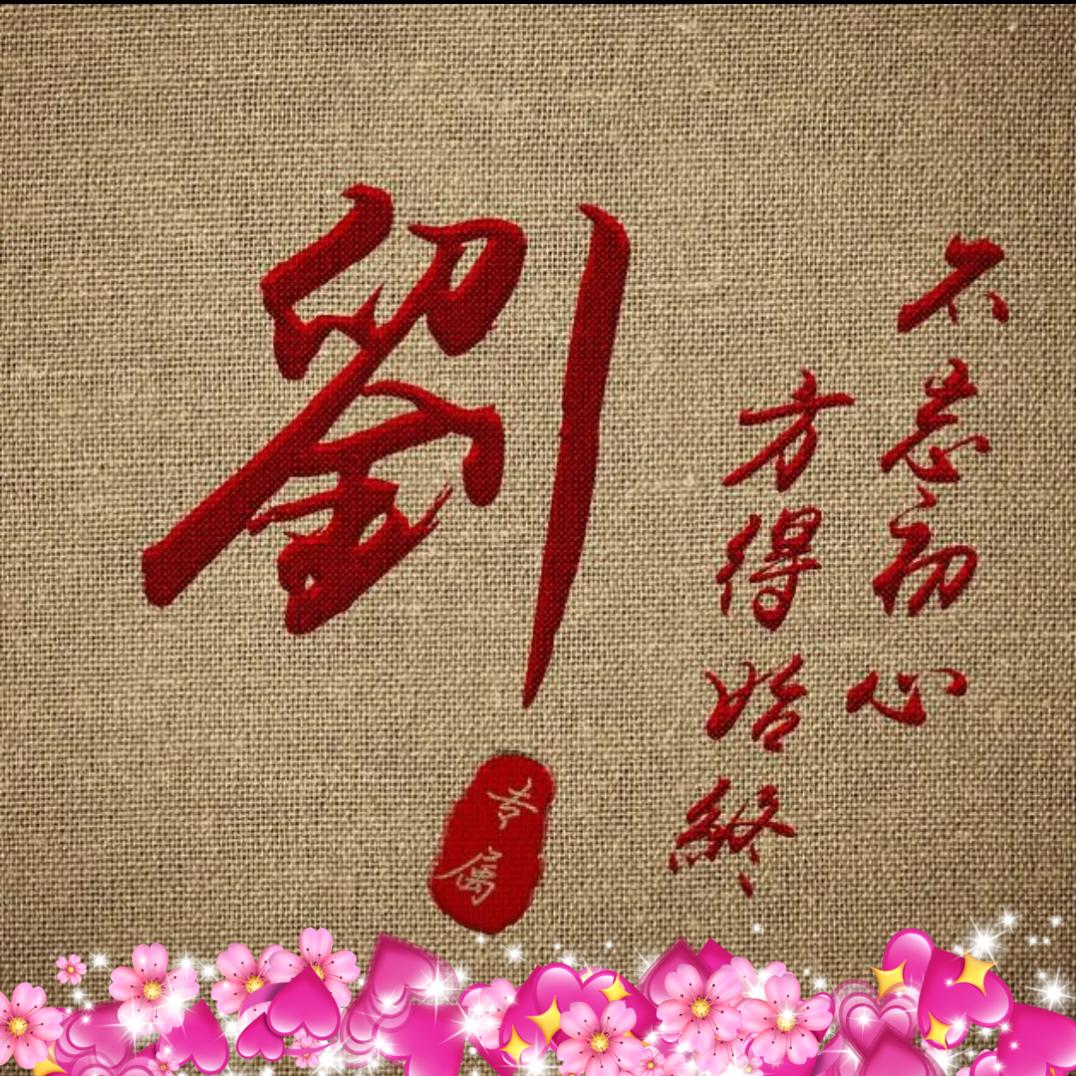 不忘初心
方得始终
劉
专属